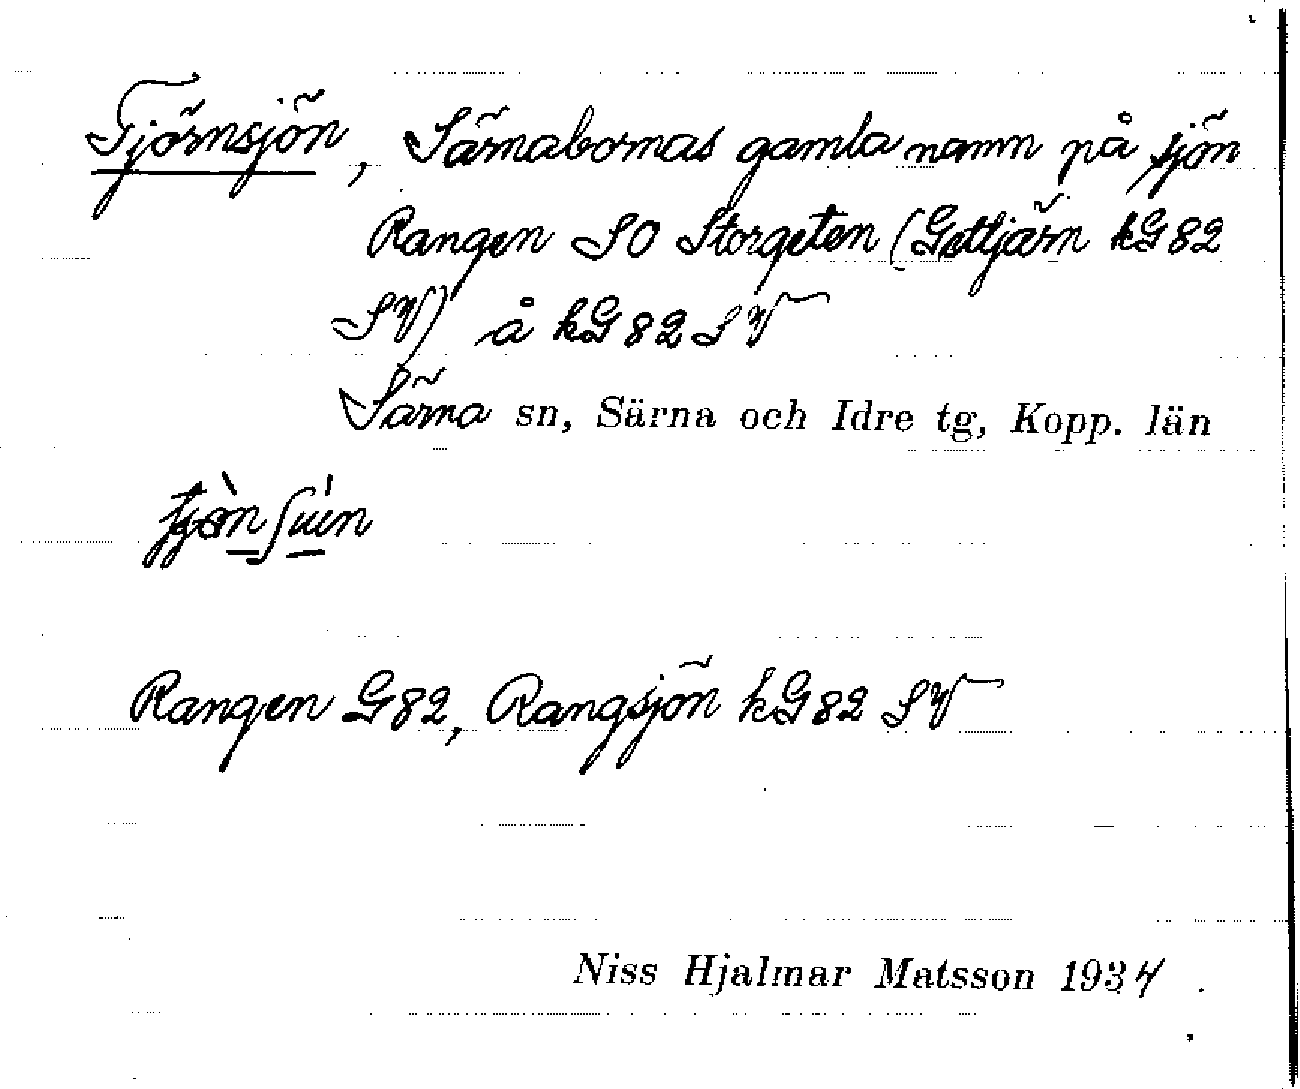 Tjörnsjön, Särnabornas gamla namn på sjön
Rangen SO Storgeten (Gettjärn kG82
SV) å kG82SV
Särna sn, Särna och Idre tg, Kopp. län
Rangen G82, Rangsjön kG82 SV
Niss Hjalmar Matsson 1934